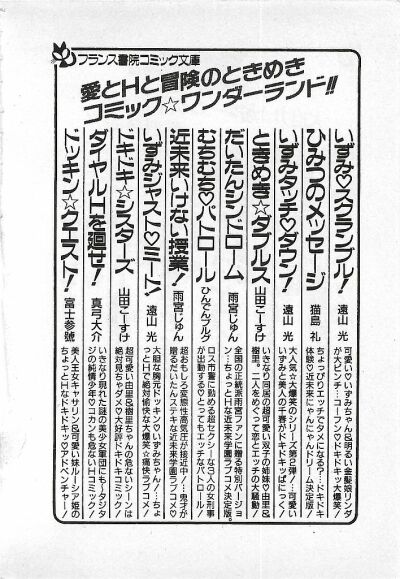 フランス書院コミック文庫
愛とHと冒険のときめき
コミック☆ワンダーランド!!
いずみ♡スクランブル! 遠山 光
可愛い♡いずみちゃん&明るい金髪娘リンダ
がパンチ・パンチ・コープン♡ドキドキ大爆笑!
ひみつのメッセージ 猫島 礼
ちょっぴりエッチでタメになる?…ドキドキ
体験♡近未来にゃんにゃんドリーム決定版!
いずみタッチ♡ダウン! 遠山 光
大人気☆大爆笑のシリーズ第2弾!…可愛い
いずみと美人の千春がドキドキッぱにっく!
ときめき☆ダブルス 山田こーすけ
いきなり同居の超可愛い双子の姉妹♡由里&
樹里。二人をめぐって恋とエッチの大騒動
だいたんシンドローム 雨宮じゅん
全国の正統派雨宮ファンに贈る特別バージョ
ン…ちょっとHな近未来学園ラブコメ決定版。
むちむち♡パトロール ひんでんブルグ
ロス市警に勤める超セクシーな3人の女刑事
が出動する♡とってもエッチなパトロール!
近未来いけない授業! 雨宮じゅん
超おもしろ変態性高気圧が接近中!…鬼才が
贈るだいたんステキな近未来学園ラブコメ♡
いずみジャスト♡ミート! 遠山 光
大胆な胸元ドッキン♡いずみちゃん!…ちょ
っとHで絶対愉快な大爆笑☆痛快ラブコメ!
ドキドキ☆シスターズ 山田こーすけ
超可愛い由里&樹里ちゃんの危ないシーンは
絶対見ちゃダメ♡大好評ドキドキコミック!
ダイヤルHを廻せ! 真弓大介
いきなり現れた謎の美少女軍団にも〜タジタ
ジの純情少年♡コカンも危ないHコミック!
ドッキン☆クエスト! 富士参號
美人王女キャサリン&可愛い妹ルーシア姫の
ちょっとHなドキドキッ♡アドベンチャー!